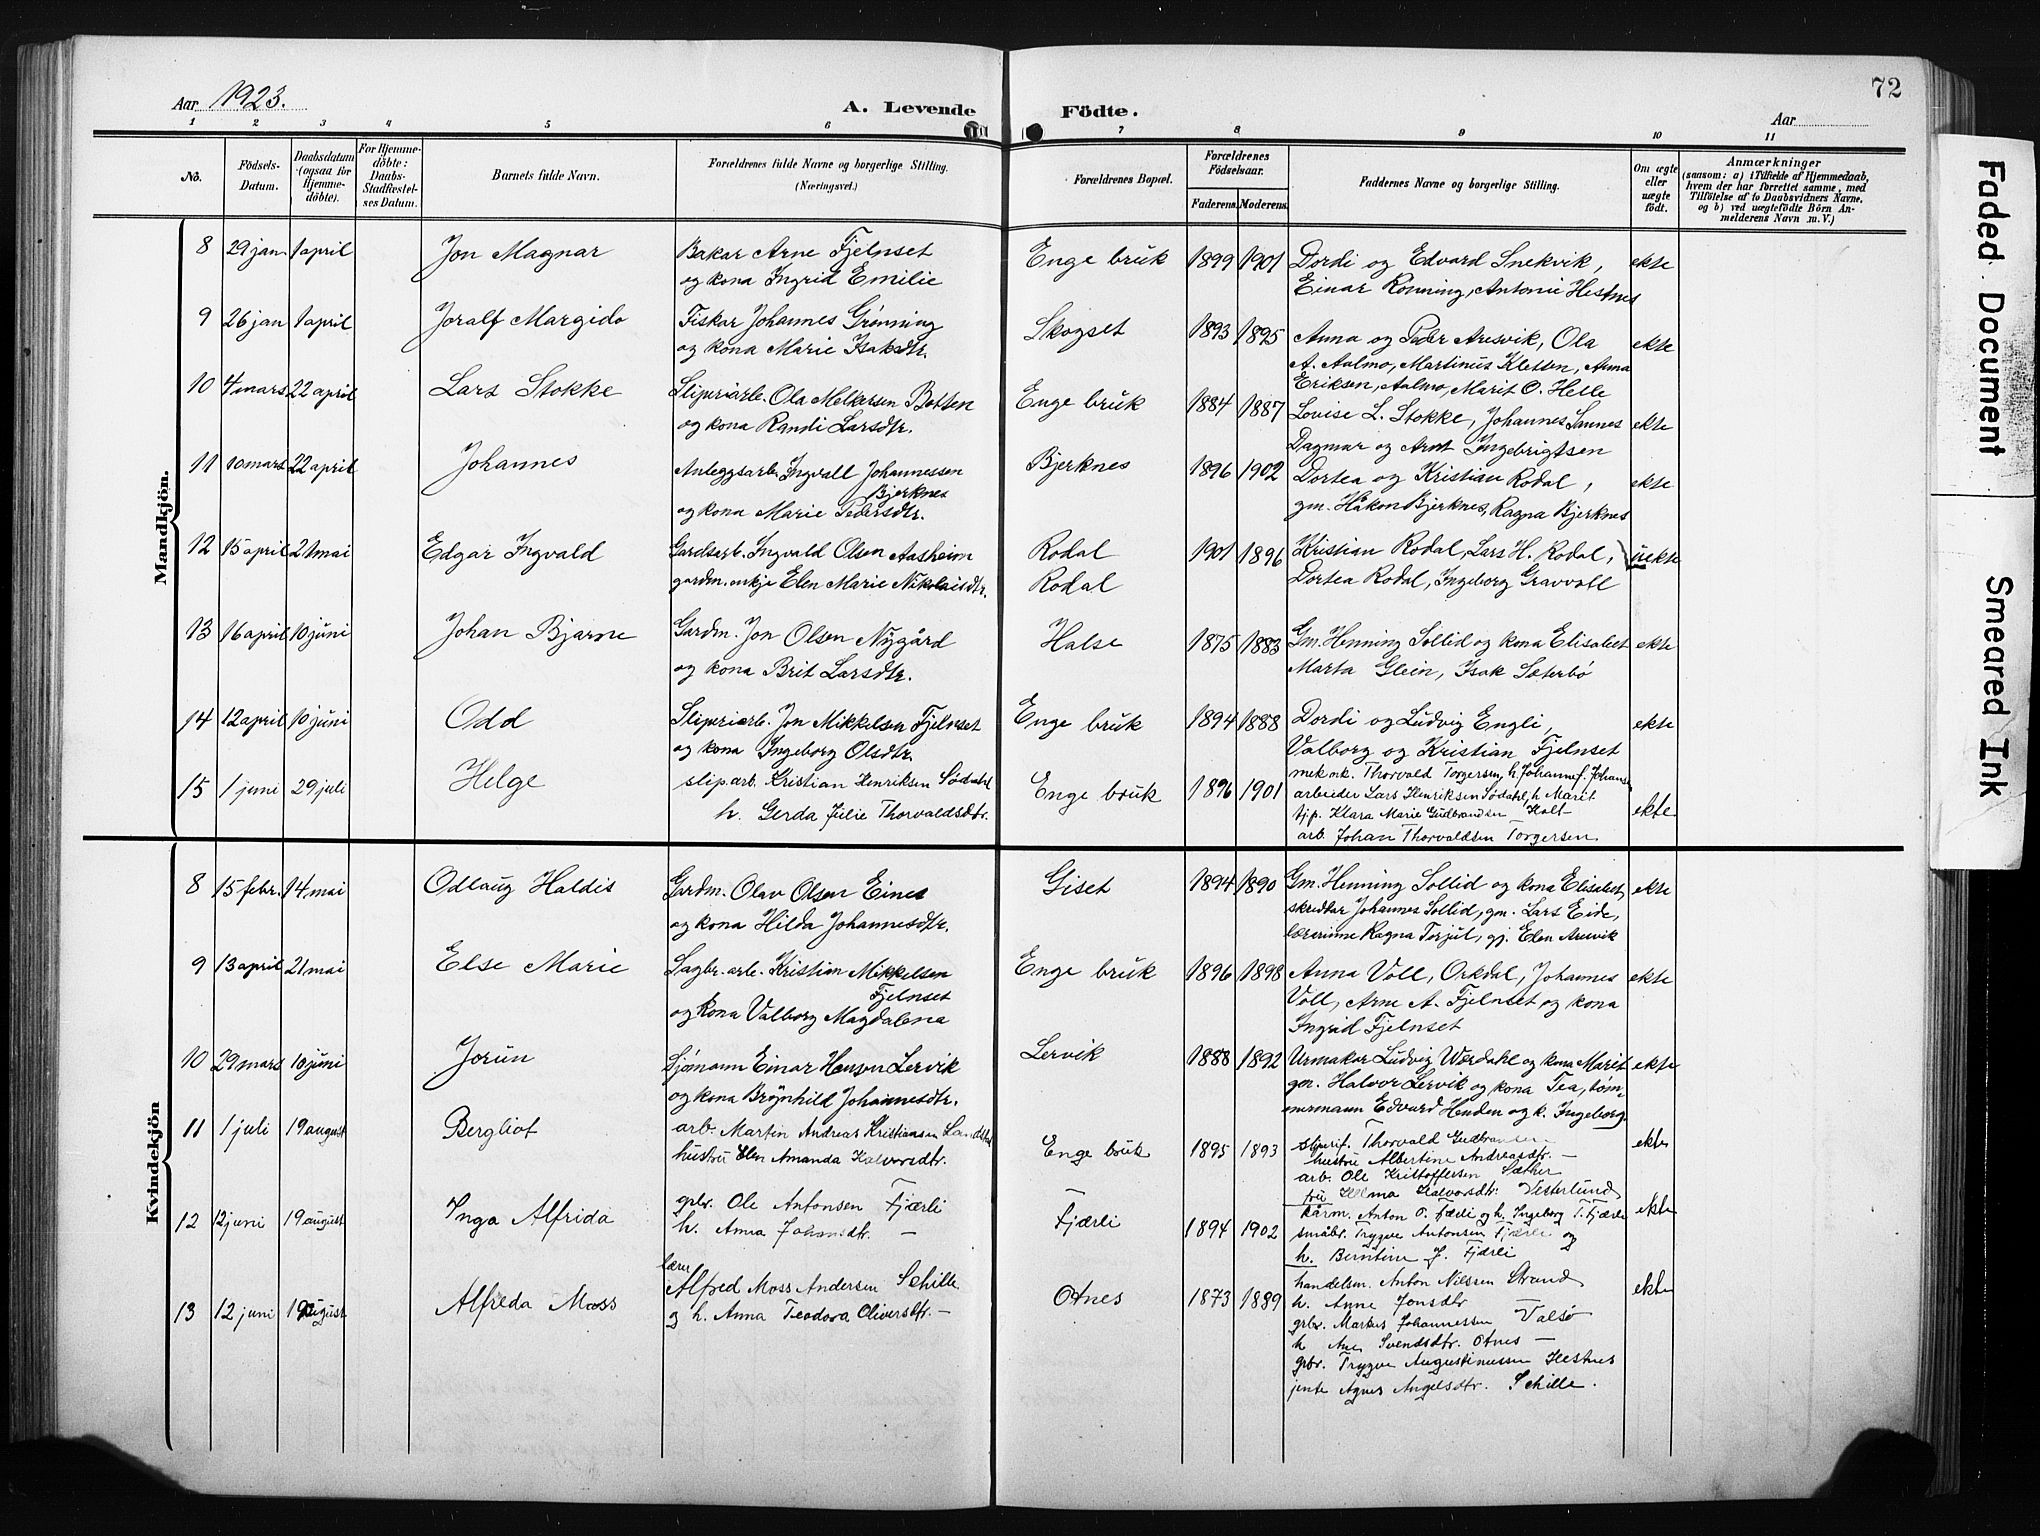 72
Aar 1923.
A. Levende Födte.
Aar
1 2 3 4 5 6 7 8 9 10 11
No.
Födsels-Datum.
Daabsdatum (ogsaa for Hjemmedöbte).
For Hjemmedöbte: Daabs-Stadfæstelses Datum.
Barnets fulde Navn.
Forældrenes fulde Navne og borgerlige Stilling.
(Næringsvei.)
Forældrenes Bopæl.
Forældrenes Födselsaar.
Faderens. Moderens.
Faddernes Navne og borgerlige Stilling.
Om ægte eller uægte födt.
Anmærkninger
(saasom: a) i Tilfælde af Hjemmedaab,
hvem der har forrettet samme, med
Tilföielse af to Daabsvidners Navne,
og b) ved uægtefödte Börn An-
melderens Navn m. V.)
Mandkjön.
8 29 jan 1 april Jon Magnar Bakar Arne Fjelnset Enge bruk 1899 1901 Dordi og Edvard Snekvik, ekte
og kona Ingrid Emilie Einar Rönning, Antonie Hestnes
9 26 jan 1 april Joralf Margido Fiskar Johannes Grønning Skogset 1893 1895 Anna og Peder Aresvik, Ola ekte
og kona Marie Isaksdtr. A. Aalmo, Martinus Kletten, Anna
Eriksen, Aalmo, Marit O. Helle
10 4 mars 22 april Lars Stokke Sliperiarb. Ola Melkersen Botten Enge bruk 1884 1887 Lovise L. Stokke, Johannes Sannes ekte
og kona Randi Larsdtr. Dagmar og Arnt Ingebrigtsen
11 10 mars 22 april Johannes Anleggsarb. Ingvall Johannessen Bjerknes Bjerknes 1896 1902 Dortea og Kristian Rodal, ekte
og kona Marie Pedersdtr. gm. Håkon Bjerknes, Ragna Bjerknes
12 15 april 21 mai Edgar Ingvald Gardsarb. Ingvald Olsen Aasheim Rodal 1901 1896 Kristian Rodal, Lars H. Rodal, uekte
gardm. enkja Elen Marie Nikolaisdtr. Rodal Dortea Rodal, Ingeborg Gravvoll
13 16 april 10 juni Johan Bjarne Gardm. Jon Olsen Nygård Halse 1875 1883 Gm. Henning Sollid og kona Elisabet ekte
og kona Brit Larsdtr. Marta Glein, Isak Sæterbö
14 12 april 10 juni Odd Sliperiarb. Jon Mikkelsen Fjelnset Enge bruk 1894 1888 Dordi og Ludvig Engli, ekte
og kona Ingeborg Olsdtr. Valborg og Kristian Fjelnset
15 1 juni 29 juli Helge slip.arb. Kristian Henriksen Södahl Enge bruk 1896 1901 mek.nk. Thorvald Torgersen, h. Johanne f. Johansen ekte
h. Gerda Julie Thorvaldsdtr. arbeider Lars Henriksen Södahl, h. Marit
tjp. Klara Marie Gudbrandsen Holt
arb. Johan Thorvaldsen Torgersen
Kvindekjön
8 15 febr. 14 mai Odlaug Haldis Gardm. Olav Olsen Eines Giset 1894 1890 Gm. Henning Sollid og kona Elisabet, ekte
og kona Hilda Johannesdtr. skreddar Johannes Sollid, gm. Lars Eide,
lærerinne Ragna Torjul, gj. Elen Aresvik
9 13 april 21 mai Else Marie Sagbr. arb. Kristian Mikkelsen Fjelnset Enge bruk 1896 1898 Anna Voll, Orkdal, Johannes ekte
og kona Valborg Magdalena Voll, Arne A. Fjelnset og kona
Ingrid Fjelnset
10 29 mars 10 juni Jorun Sjømann Einar Hansen Lervik Lervik 1888 1892 Urmakar Ludvig Wærdahl og kona Marit ekte
og kona Brynhild Johannesdtr. gm. Halvor Lervik og kona Tea, töm-
mermann Edvard Henden og k. Ingeborg.
11 1 juli 19 august Bergliot arb. Martin Andreas Kristiansen Enge bruk 1895 1893 sliperif. Thorvald Gudbrandsen ekte
hustru Elen Amanda Halvorsdtr. hustru Albertine Andreasdtr. —
arb. Ole Kristoffersen Sæther
fru Helma Halvorsdtr. Vesterlund
12 12 juni 19 august Inga Alfrida gbr. Ole Antonsen Fjærli Fjærli 1894 1902 kårm. Anton O. Fjærli og h. Ingeborg T. Fjærli ekte
h. Anna Johansdtr. — småbr. Trygve Antonsen Fjærli og
h. Berntine J. Fjærli
13 12 juni 19 august Alfreda Moss lærer Alfred Moss Andersen Schille Otnes 1873 1889 handelsm. Anton Nilssen Strand ekte
og h. Anna Teodora Oliversdtr. — h. Anne Jonsdtr
gbr. Markus Johannessen Valsø
h Ane Svendsdtr. Otnes —
gbr. Trygve Augustinussen Hestnes
jente Agnes Angelsdtr. Schille.
Faded Document
Smeared Ink